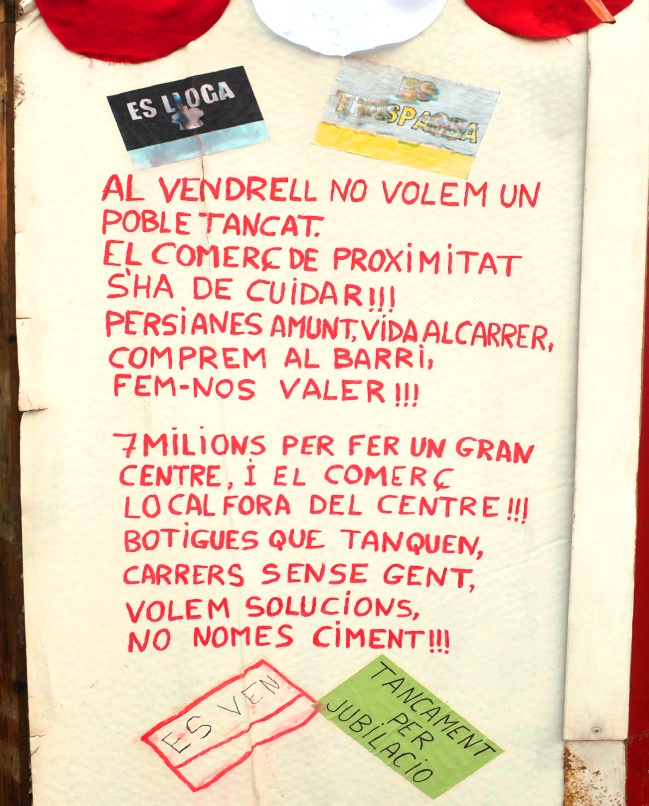 ES LLOGA
ES
TRASPASSA
AL VENDRELL NO VOLEM UN
POBLE TANCAT.
EL COMERÇ DE PROXIMITAT
S'HA DE CUIDAR!!!
PERSIANES AMUNT, VIDA AL CARRER,
COMPREM AL BARRI,
FEM-NOS VALER!!!
7 MILIONS PER FER UN GRAN
CENTRE, I EL COMERÇ
LOCAL FORA DEL CENTRE!!!
BOTIGUES QUE TANQUEN,
CARRERS SENSE GENT,
VOLEM SOLUCIONS,
NO NOMES CIMENT!!!
ES VEN
TANCAMENT
PER
JUBILACIO